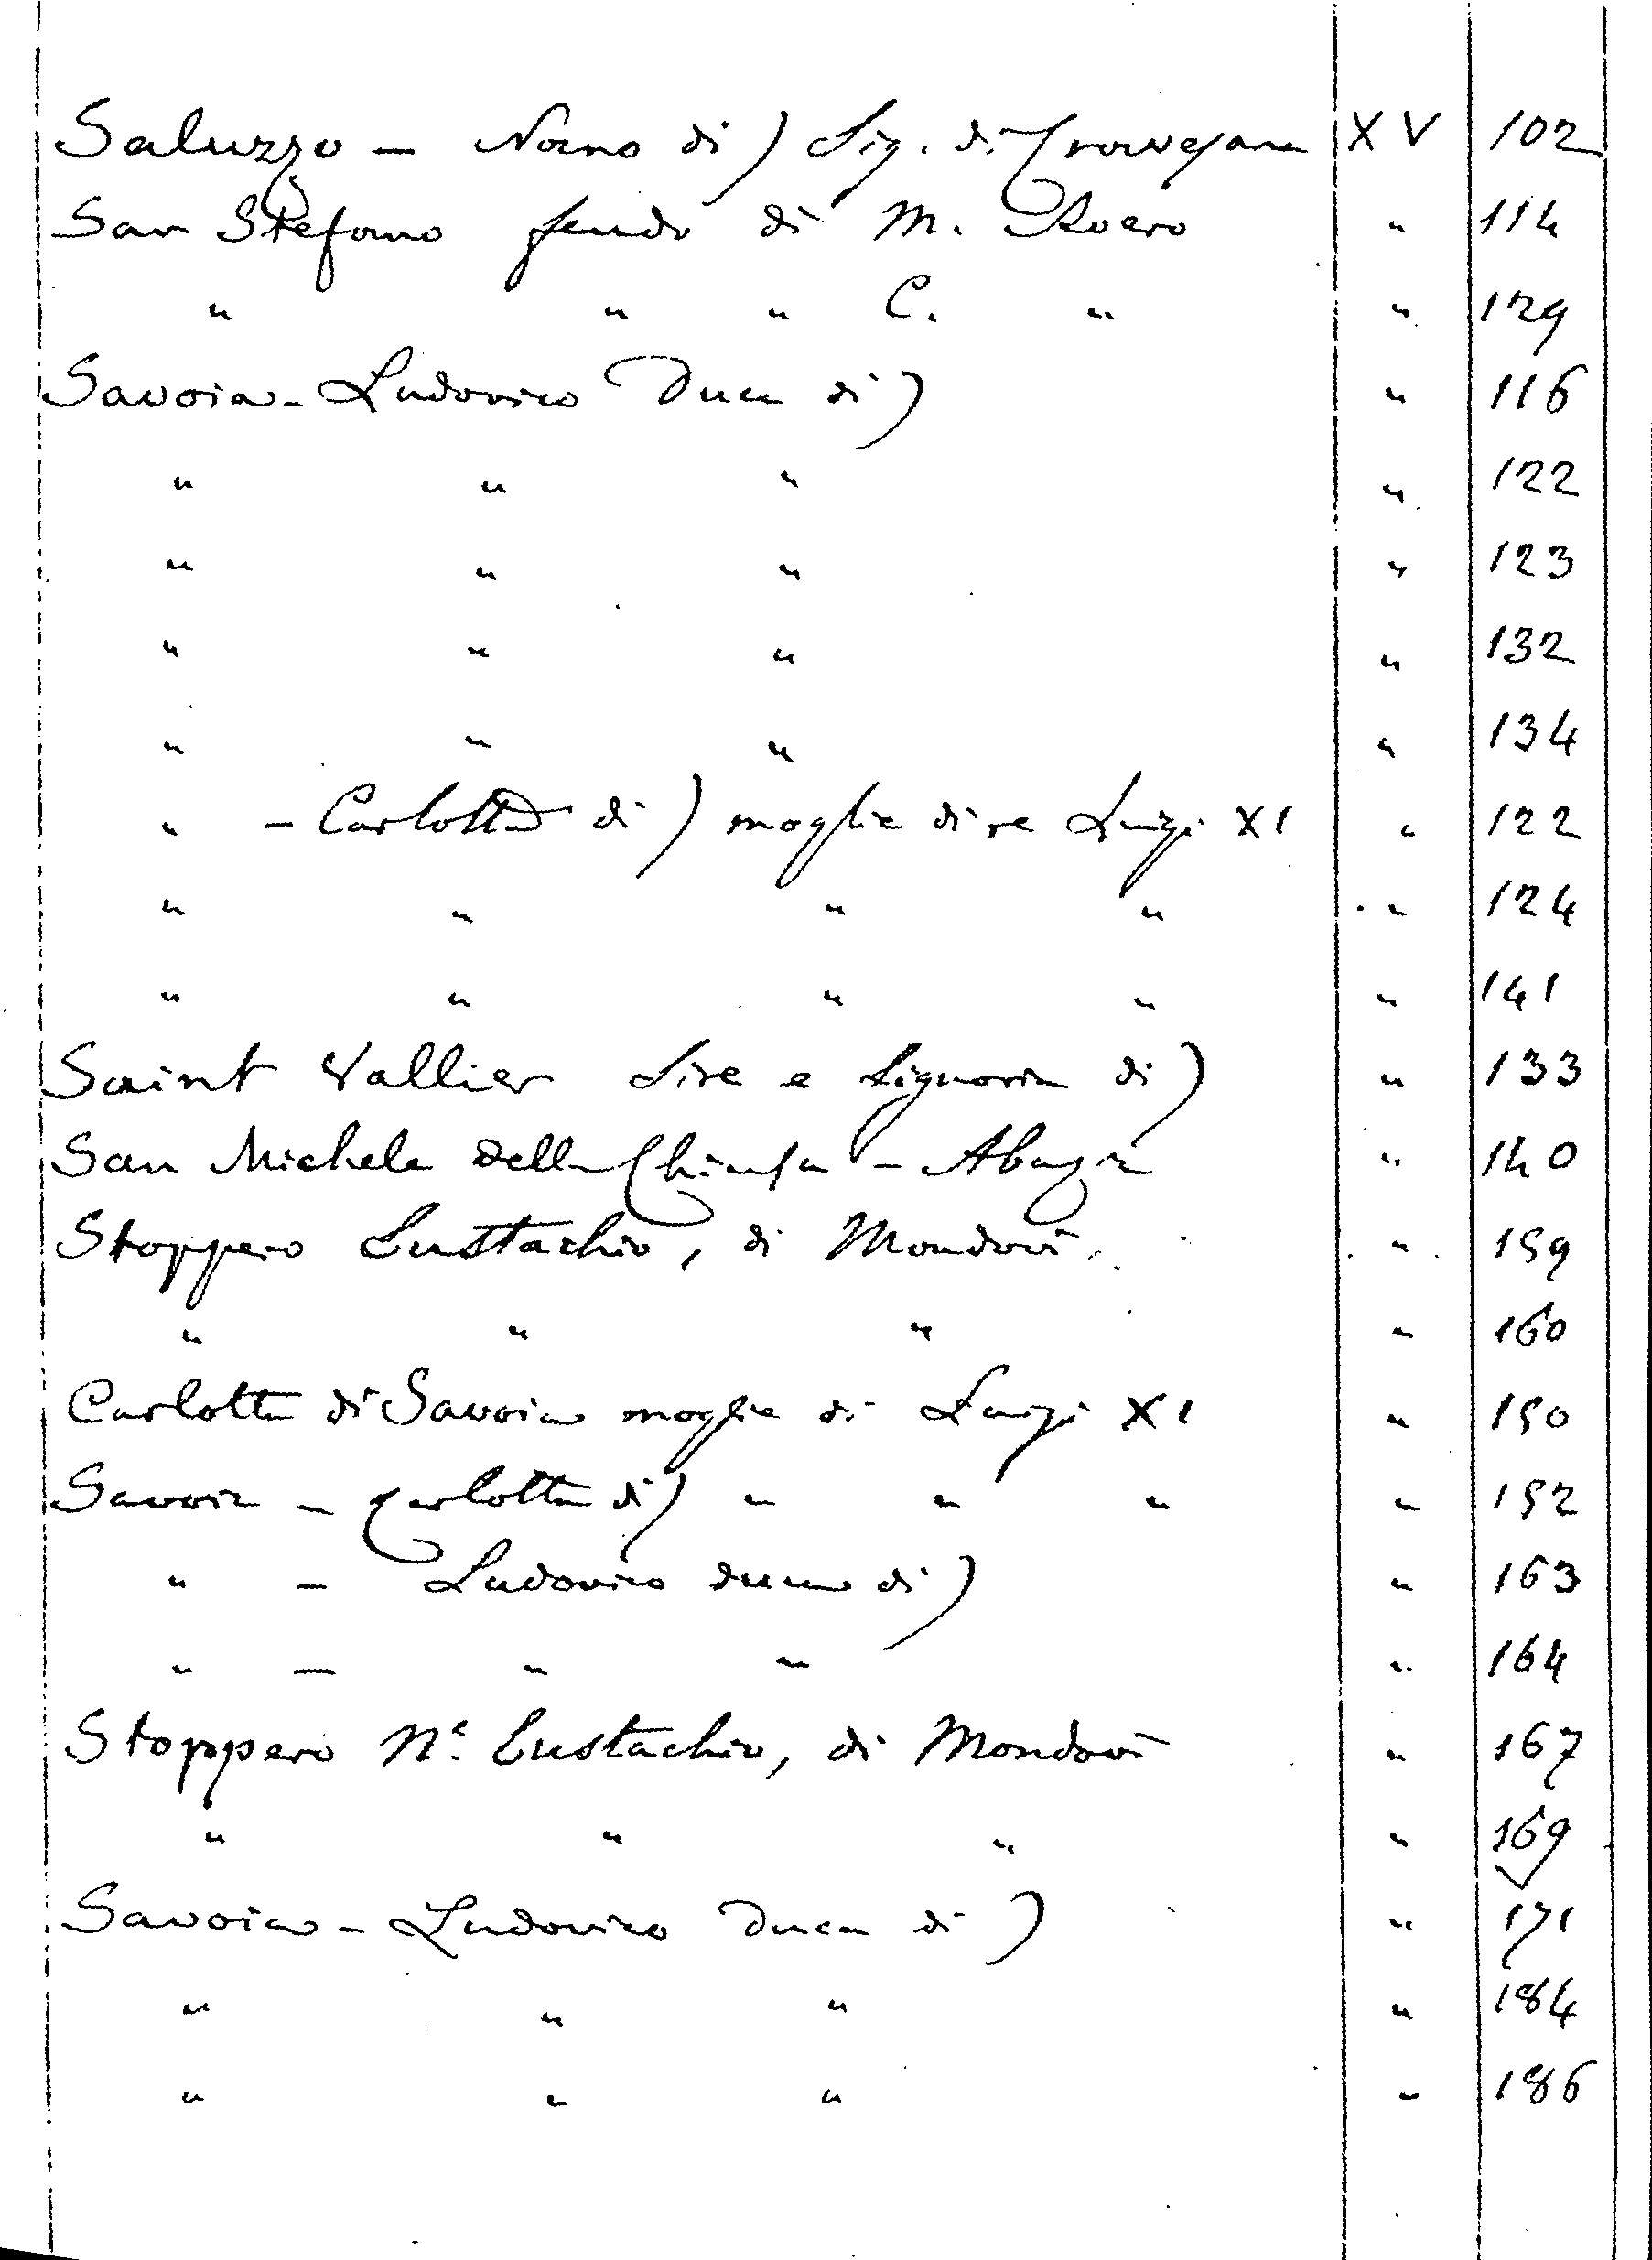 Saluzzo – Nano di) Sig. di XV 102
San Stefano feudo di M. Roero " 114
" " " C. " " 129
Savoia – Ludovico Duca di) " 116
" " " " 122
" " " " 123
" " " " 132
" " " " 134
" – Carlotta di) moglie di re Luigi XI " 122
" " " " " 124
" " " " " 141
Saint Vallier Sire e Signoria di) " 133
San Michele della Chiusa – Abazia " 140
Stoppero Eustachio, di Mondovì " 159
" " " " 160
Carlotta di Savoia moglie di Luigi XI " 150
Savoia – Carlotta di) " " " " 152
" – Ludovico duca di) " 163
" – " " " 164
Stoppero N.º Eustachio, di Mondovì " 167
" " " " 169
Savoia – Ludovico Duca di) " 171
" " " " 184
" " " " 186